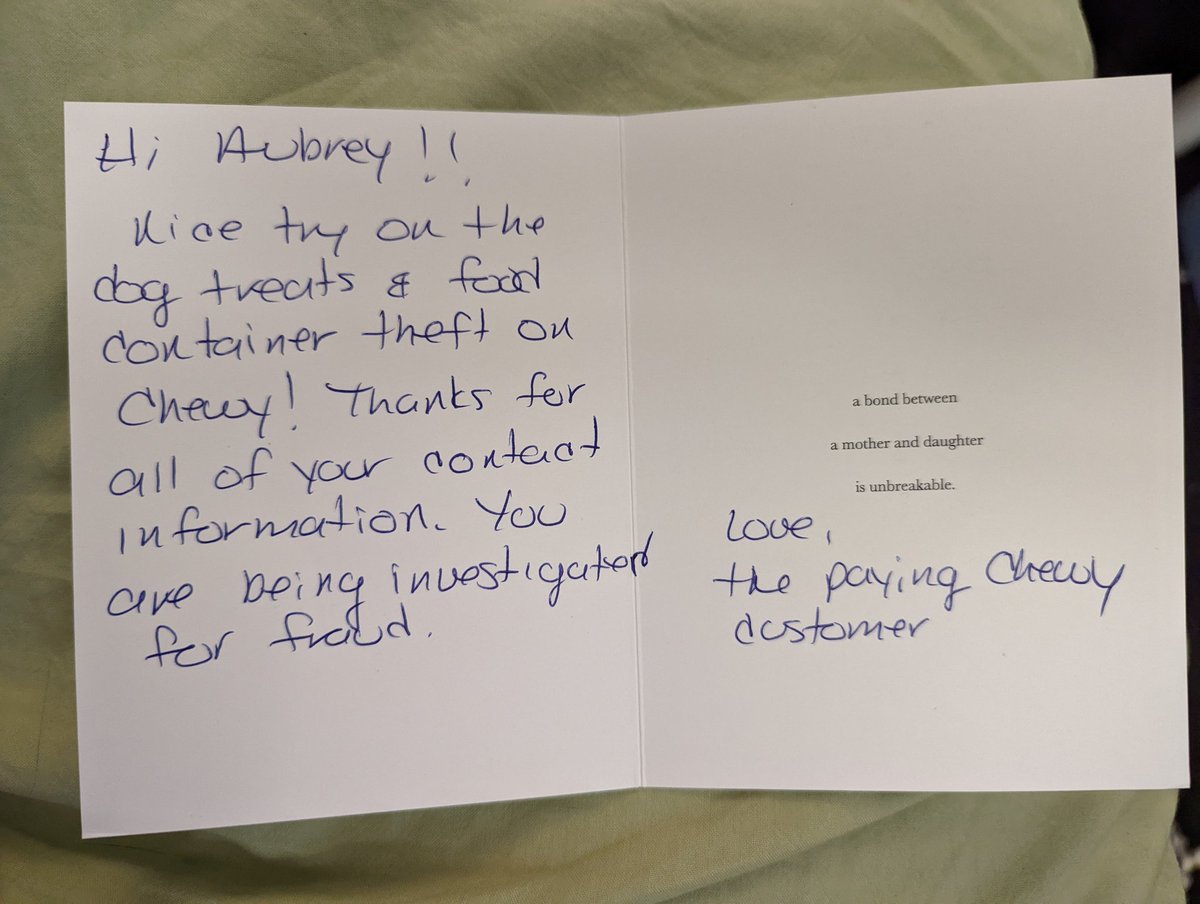 Hi Aubrey!!
Nice try on the
dog treats & food
container theft on
Chewy! Thanks for
all of your contact
information. You
are being investigated
for fraud.
a bond between
a mother and daughter
is unbreakable.
Love,
the paying Chewy
customer